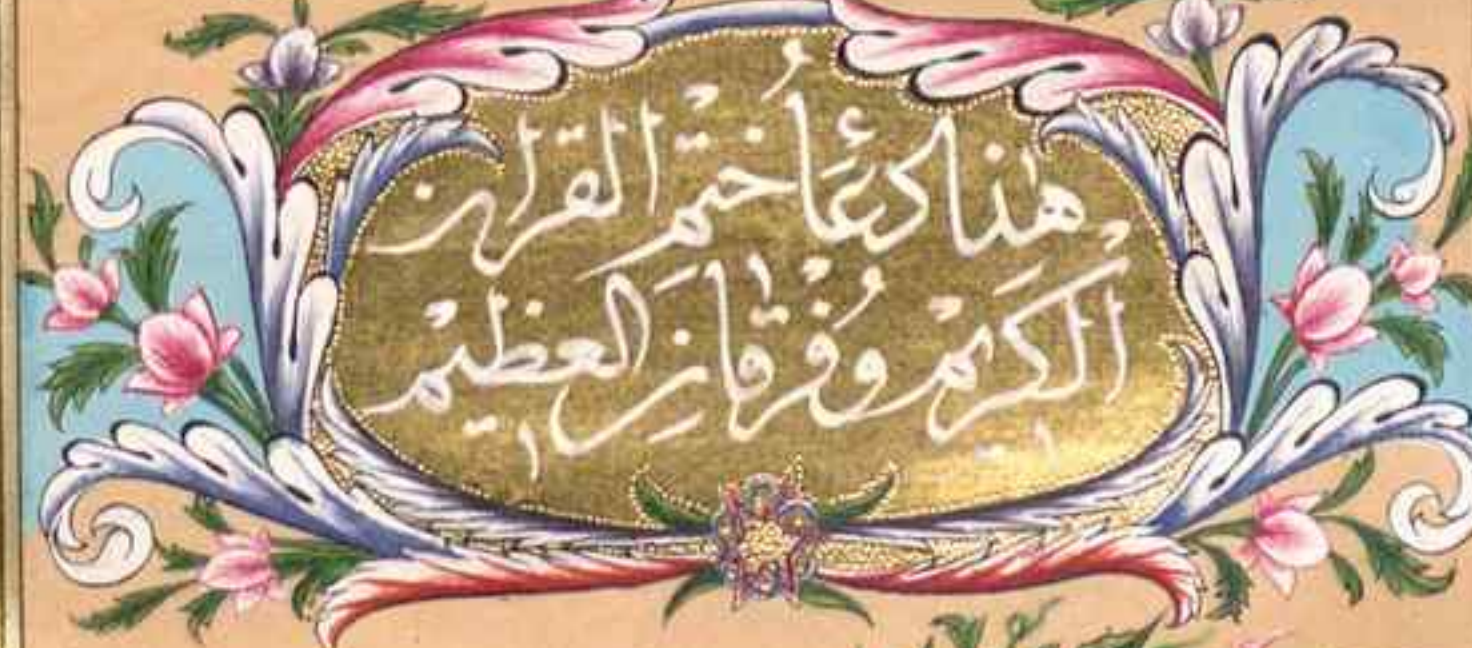 هذا دعاء ختم القرآن
الكريم وفرقان العظيم